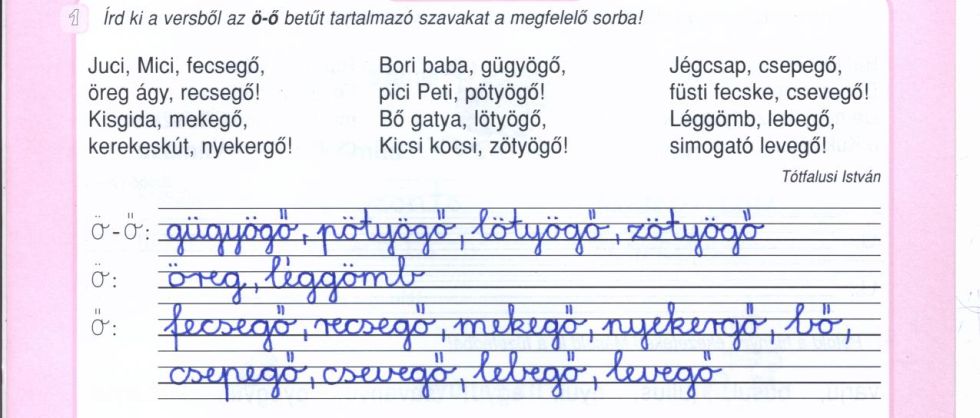 1 Írd ki a versből az ö-ő betűt tartalmazó szavakat a megfelelő sorba!
Juci, Mici, fecsegő,
öreg ágy, recsegő!
Kisgida, mekegő,
kerekeskút, nyekergő!
Bori baba, gügyögő,
pici Peti, pötyögő!
Bő gatya, lötyögő,
Kicsi kocsi, zötyögő!
Jégcsap, csepegő,
füsti fecske, csevegő!
Léggömb, lebegő,
simogató levegő!
Tótfalusi István
ö-ő: gügyögő, pötyögő, lötyögő, zötyögő
ö: öreg, léggömb
ő: fecsegő, recsegő, mekegő, nyekergő, bő,
csepegő, csevegő, lebegő, levegő